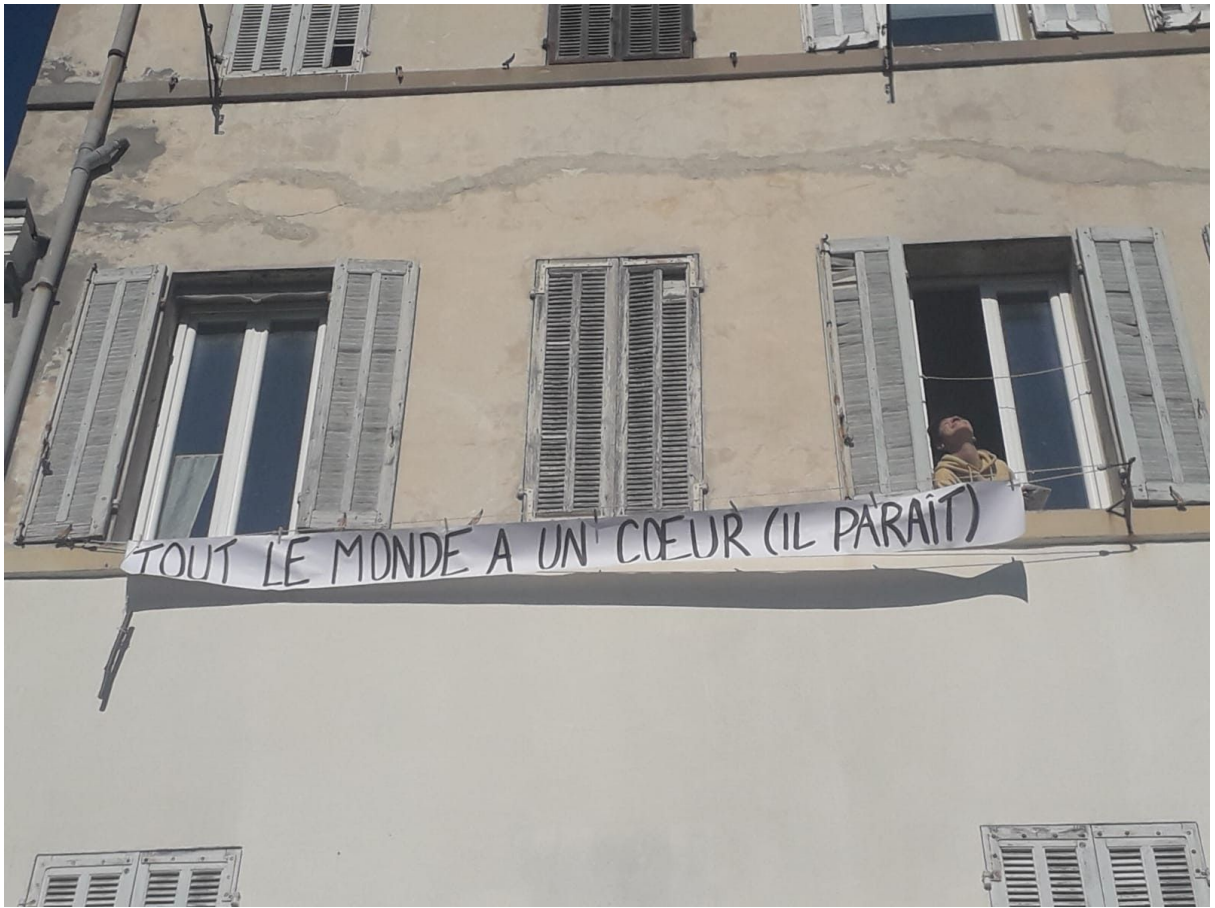 TOUT LE MONDE A UN COEUR (IL PARAÎT)